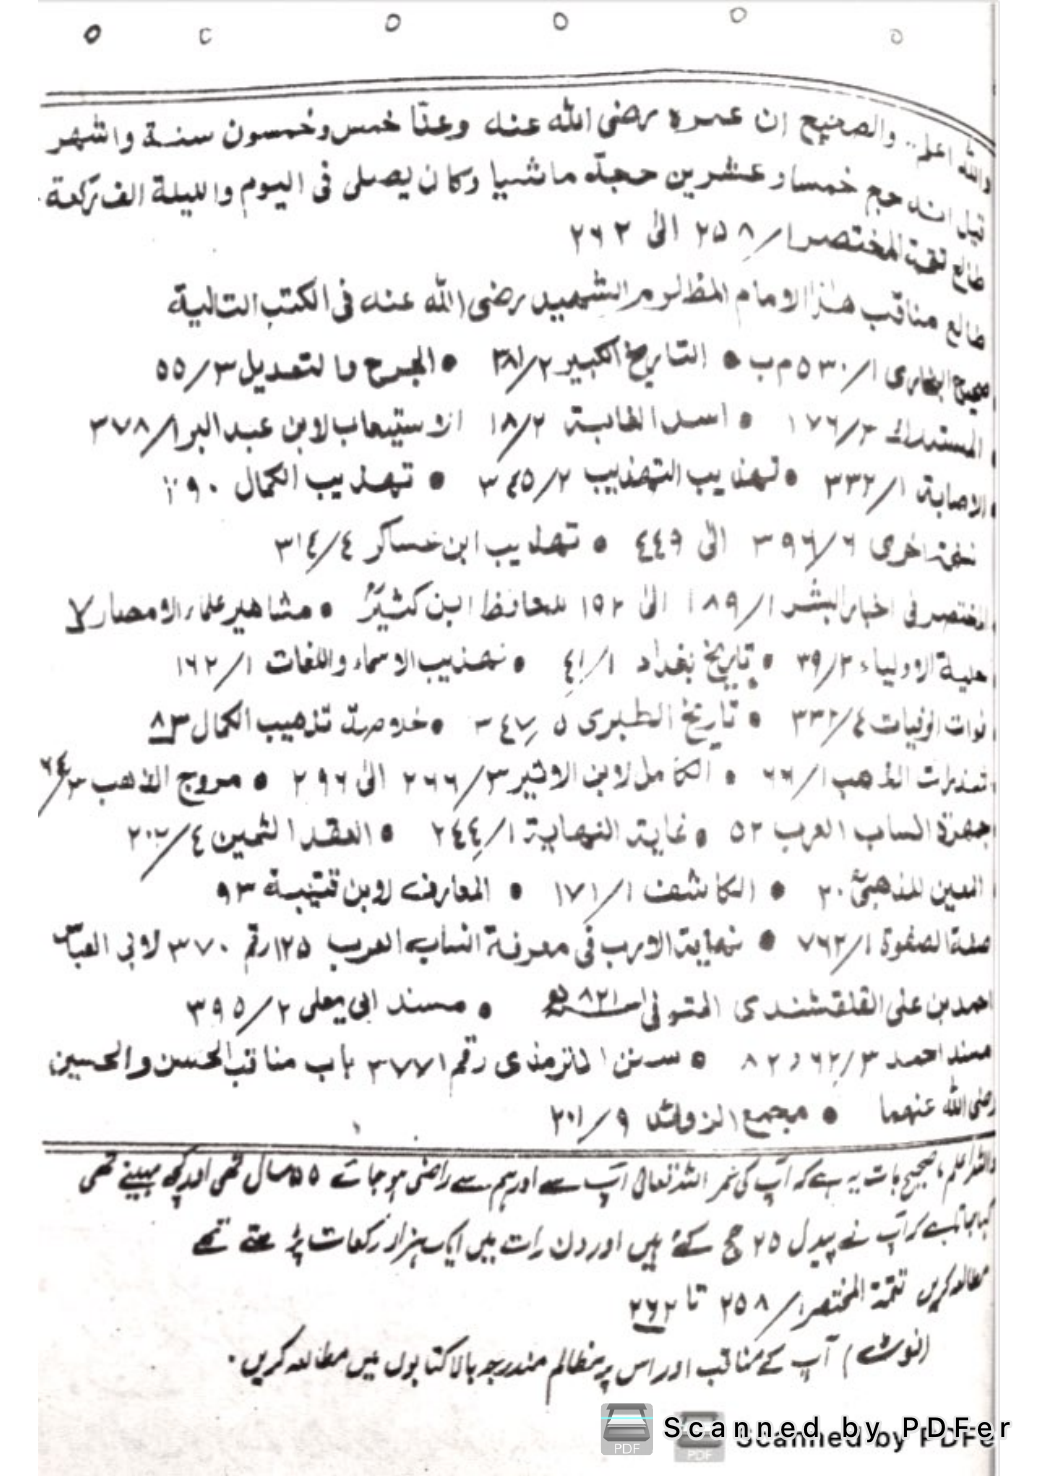 والله اعلم .. والصحيح ان عمره رضی الله عنه وعنّا خمس وخمسون سنة واشهر
قيل انه حج خمسا وعشرين حجة ماشيا وكان يصلى فى اليوم والليلة الف ركعة
طالع تتمة المختصر ١/٢٥٨ الى ٢٦٢
طالع مناقب هذا الامام المظلوم الشهيد رضى الله عنه فى الكتب التالية
صحيح البخارى ١/٥٣٠ م ب • التاريخ الكبير ٢/٣٨١ • الجرح والتعديل ٣/٥٥
المستدرك ٣/١٧٦ • اسد الغابة ٢/١٨ الاستيعاب لابن عبد البر ١/٣٧٨
• الاصابة ١/٣٣٢ • تهذيب التهذيب ٢/٣٤٥ • تهذيب الكمال ٩٠
نسخة اخرى ٦/٣٩٦ الى ٤٤٩ • تهذيب ابن عساكر ٤/٣١٤
المختصر فى اخبار البشر ١/١٨٩ الى ١٩٢ للحافظ ابن كثيرؒ • مشاهير علماء الامصار ٧
حلية الاولياء ٢/٣٩ • تاريخ بغداد ١/١٤ • تهذيب الاسماء واللغات ١/١٦٢
فوات الوفيات ٤/٣٣٢ • تاريخ الطبرى ٥/٣٤٧ • خلاصة تذهيب الكمال ٨٣
شذرات الذهب ١/٦٦ • الكامل لابن الاثير ٣/٢٦٦ الى ٢٩٦ • مروج الذهب
جمهرة انساب العرب ٥٢ • غاية النهاية ١/٢٤٤ • العقد الثمين ٤/٢٠٢
المعين للذهبىؒ ٢٠ • الكاشف ١/١٧١ • المعارف لابن قتيبة ٩٣
صفة الصفوة ١/٧٦٢ • نهاية الارب فى معرفة انساب العرب ١٢٥ رقم ٣٧٠ لابى العباس
احمد بن على القلقشندى المتوفى ٨٢١ • مسند ابى يعلى ٢/٣٩٥
مسند احمد ٣/٦٢، ٨٢ • سنن الترمذى رقم ٣٧٧١ باب مناقب الحسن والحسين
رضى الله عنهما • مجمع الزوائد ٩/٢٠١
واللہ اعلم، صحیح بات یہ ہے کہ آپ کی عمر اللہ تعالیٰ آپ سے اور ہم سے راضی ہو جائے ۵۵ سال تھی اور کچھ مہینے تھی
کہا جاتا ہے کہ آپ نے پیدل ۲۵ حج کئے ہیں اور دن رات میں ایک ہزار رکعات پڑھتے تھے
مطالعہ کریں تتمۃ المختصر ۱/۲۵۸ تا ۲۶۲
(نوٹ) آپ کے مناقب اور اس پر مظالم مندرجہ بالا کتابوں میں مطالعہ کریں.
Scanned by PDFer
Scanned by PDFe